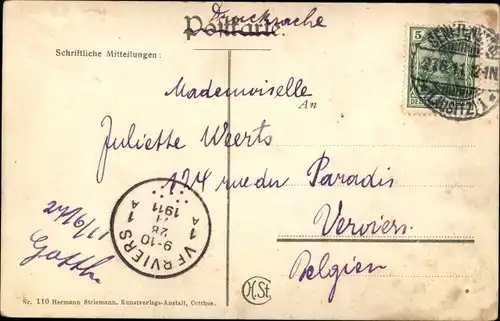 Drucksache
Postkarte
Schriftliche Mitteilungen:
5
27.6.11
(LAUSITZ) 1
Mademoiselle
An
Juliette Weerts
124 rue du Paradis
Verviers
Belgien
27/6/11
VERVIERS 1
9-10
28
VI
1911
A
A
1
H.St.
Nr. 110 Hermann Striemann, Kunstverlags-Anstalt, Cottbus.